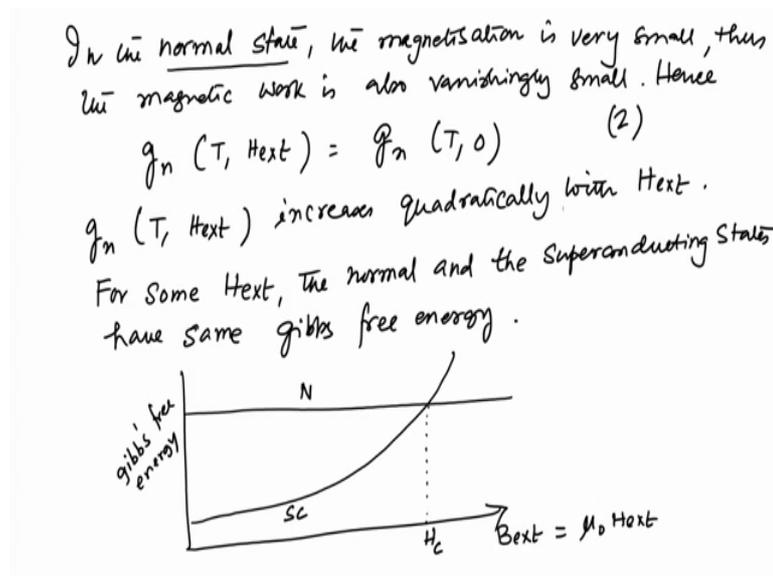 In the normal state, the magnetisation is very small, thus
the magnetic work is also vanishingly small. Hence
gn (T, Hext) = gn (T, 0) (2)
gn (T, Hext) increases quadratically with Hext.
For some Hext, The normal and the Superconducting States
have same gibbs free energy.
N
gibbs' free
energy
SC
Hc
Bext = μ0 Hext